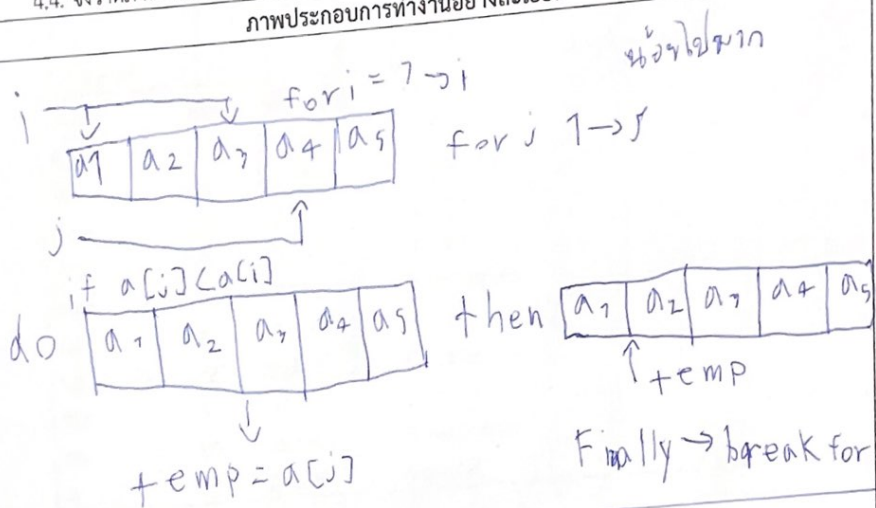 4.4.
ภาพประกอบการทำงานอย่างละเอียด
น้อยไปมาก
i
for i = 1 → i
a1 a2 a3 a4 a5
for j 1 → 5
j
if a[j] < a[i]
do a1 a2 a3 a4 a5 then a1 a2 a3 a4 a5
temp
temp = a[j]
Finally → break for